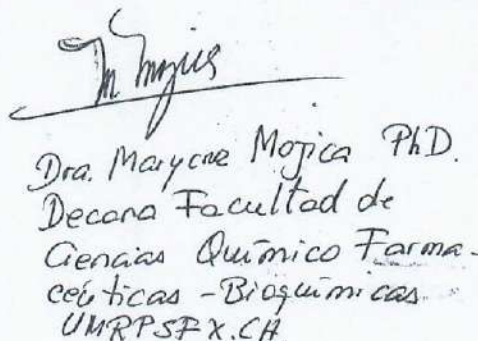 M Mojica
Dra. Marycne Mojica PhD.
Decana Facultad de
Ciencias Químico Farma-
ceúticas - Bioquímicas
UMRPSFX.CH